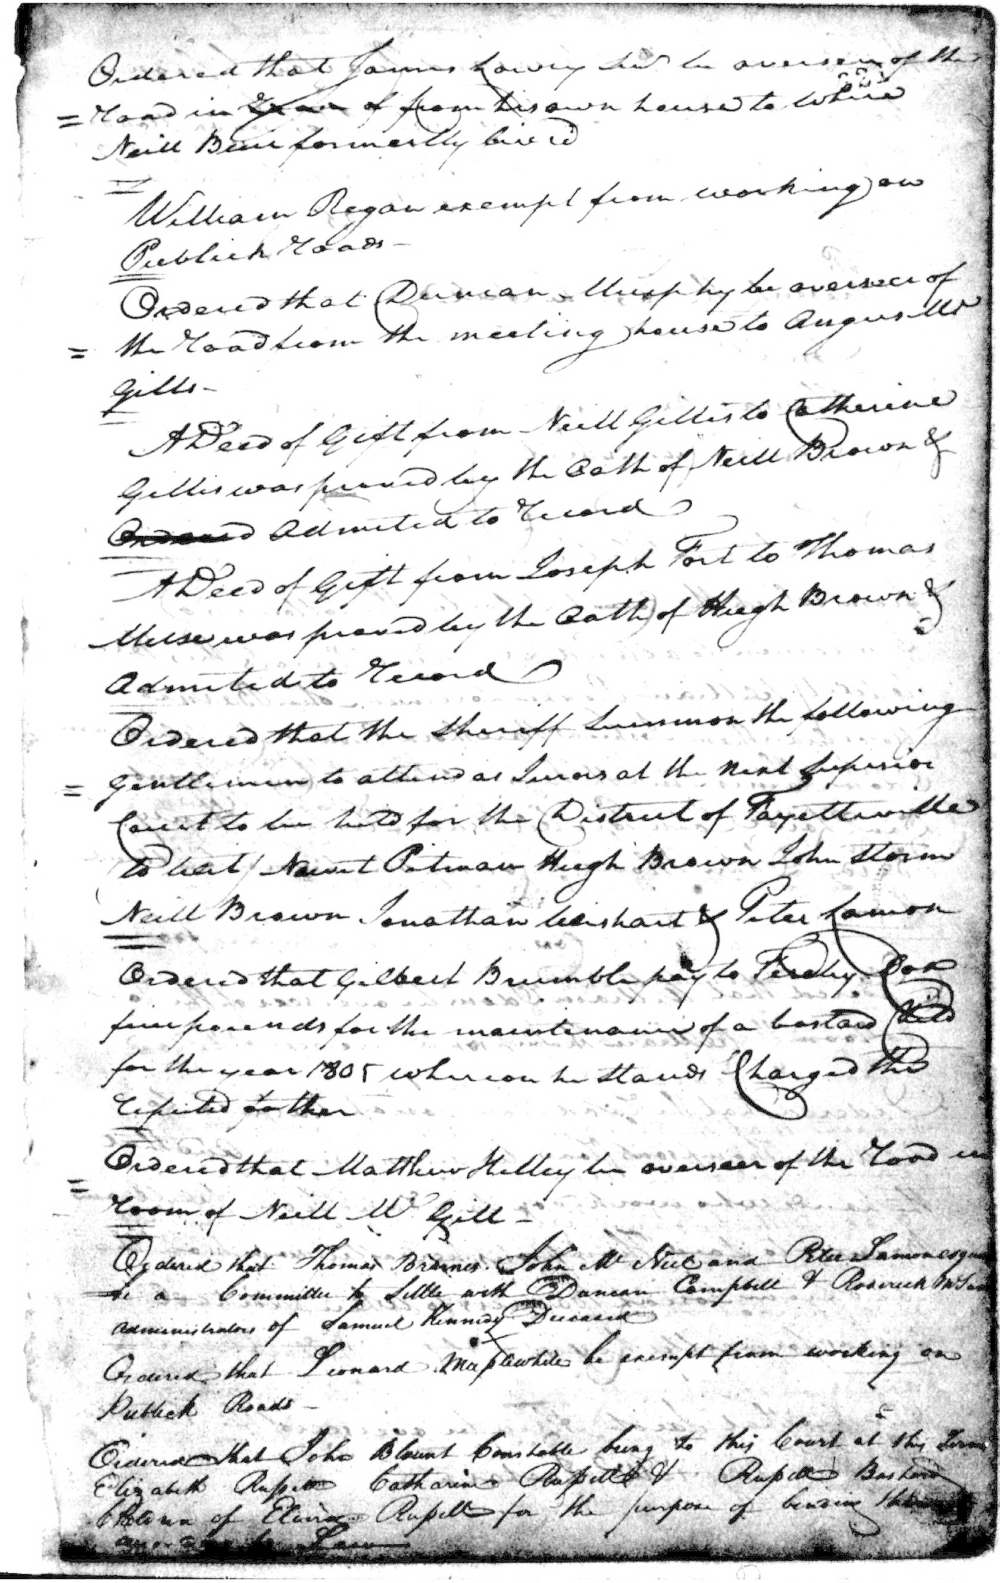 Ordered that James Lowry Senr be overseer of the
= Road in from his own house to where
Neill Buie formerly lived
William Regan exempt from working on
Publick Roads -
Ordered that Duncan Murphy be overseer of
= the Road from the meeting house to Angus Mc
Gills -
A Deed of Gift from Neill Gillis to Catherine
Gillis was proved by the Oath of Neill Brown &
Ordered Admited to Record
A Deed of Gift from Joseph Fort to Thomas
was proved by the Oath of Hugh Brown &
Admited to Record
Ordered that the Sheriff Summon the following
= Gentlemen to attend as Jurors at the next Superior
Court to be held for the District of Fayetteville
to wit / Newit Pitman Hugh Brown John Storm
Neill Brown Jonathan Wishart & Peter Lamon
Ordered that Gilbert Brumble pay to Cox
five pounds for the maintenance of a bastard Child
for the year 1805 whereon he stands Charged the
reputed father
Ordered that Matthew Kelley be overseer of the Road in
= room of Neill Mc Gill -
Ordered that Thomas Barnes John Mc Neil and Peter Lamon esqrs
be a Committee to Settle with Duncan Campbell & Roderick
administrators of Samuel Kennedy Deceased
Ordered that Leonard Maplewhite be exempt from working on
Publick Roads -
Ordered that John Blount Constable bring to this Court at this Term
Elizabeth Russell Catharine Russell & Russell Bastard
Children of Russell for the purpose of binding them
Law